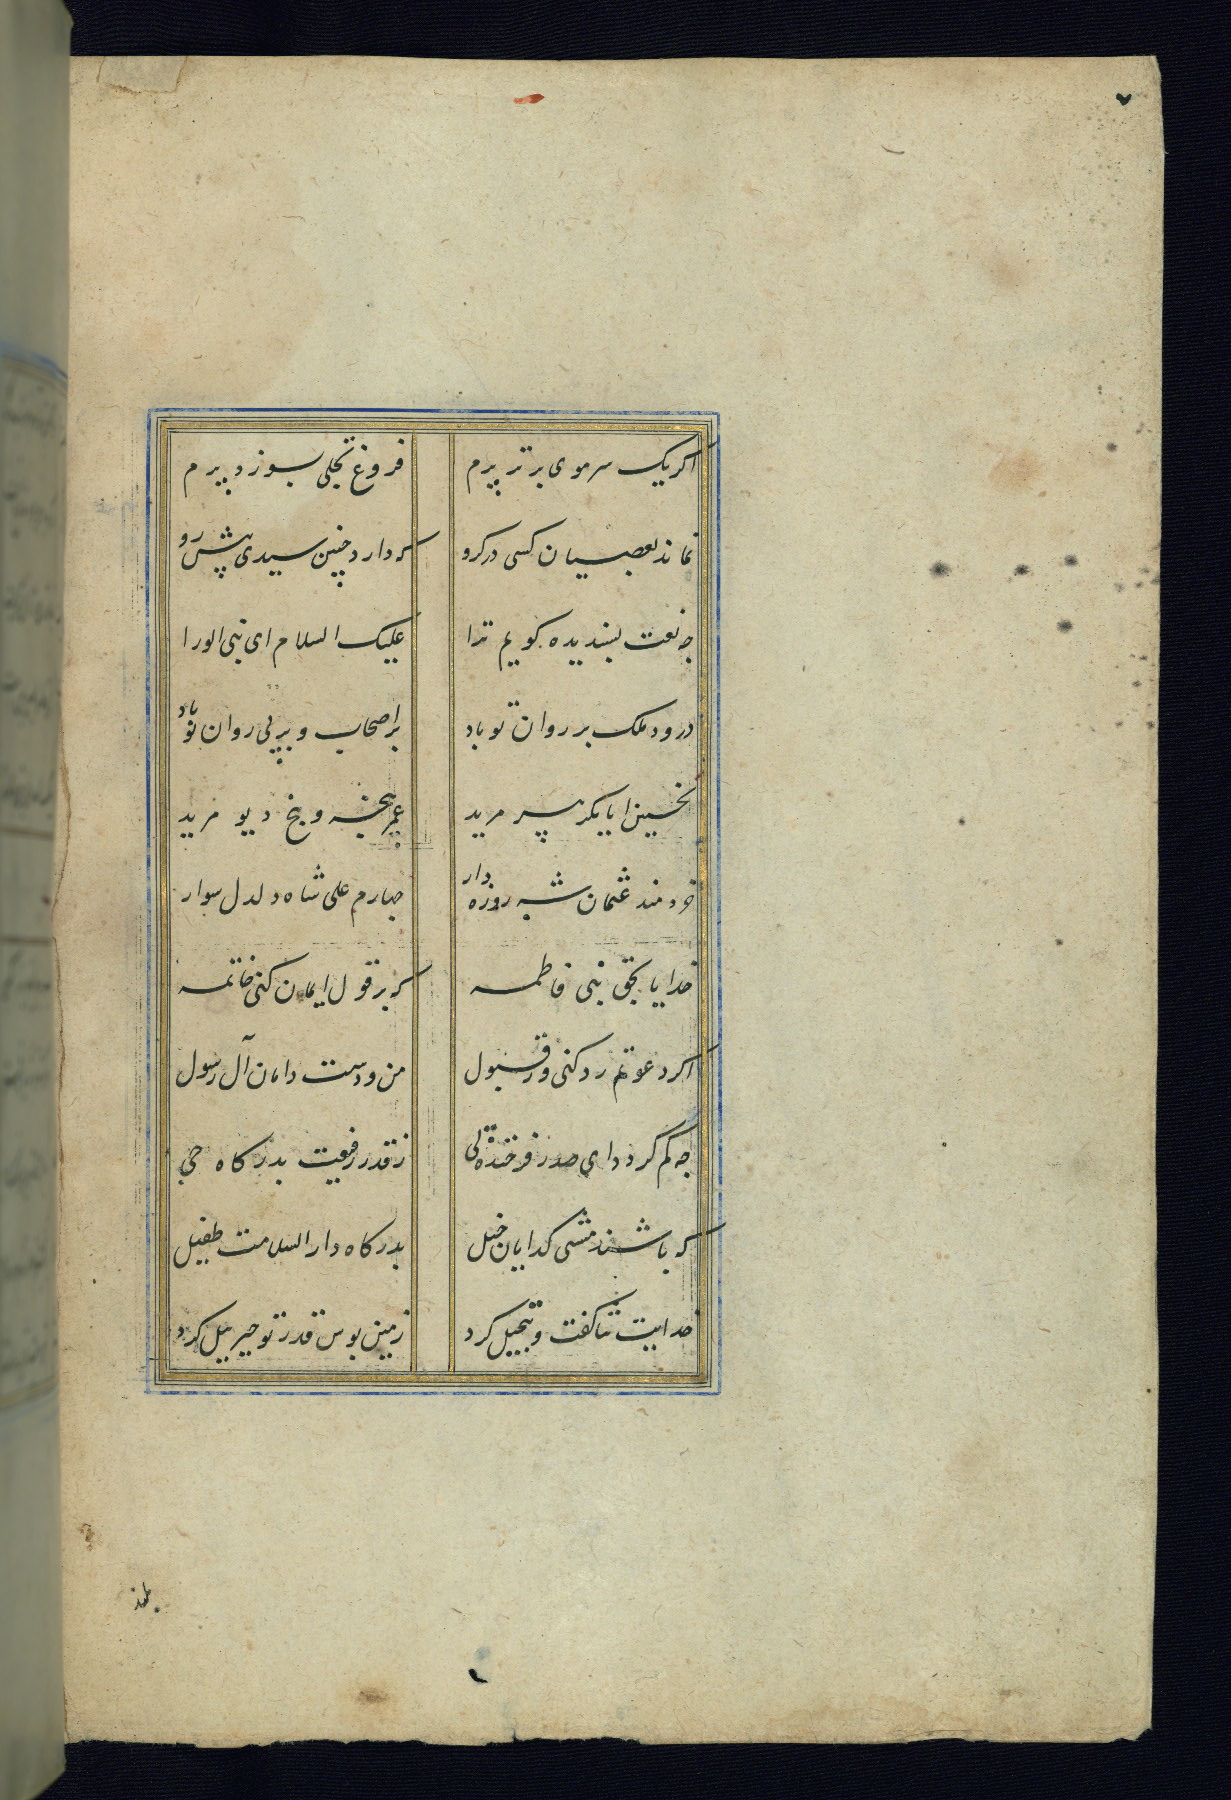 اکر یک سر موی برتر پرم فروغ تجلی بسوزد پرم
نماند بعصیان کسی در کرو که دارد چنین سیدی پیش رو
چه نعت پسندیده کویم ترا علیک السلام ای نبی الورا
درود ملک بر روان تو باد بر اصحاب و بر پی روان تو باد
نخستین ابابکر پیر مرید عمر پنجه و پنج دیو مرید
خردمند عثمان شب روزه دار چهارم علی شاه دلدل سوار
خدایا بحق بنی فاطمه که بر قول ایمان کنی خاتمه
اکر دعوتم رد کنی ور قبول من و دست دامان آل رسول
چه کم گردد ای صدر فرخنده پی ز قدر رفیعت بدرکاه حی
که باشند مشتی کدایان خیل بدرکاه دار السلامت طفیل
خدایت ثنا کفت و تبجیل کرد زمین بوس قدر تو جبریل کرد